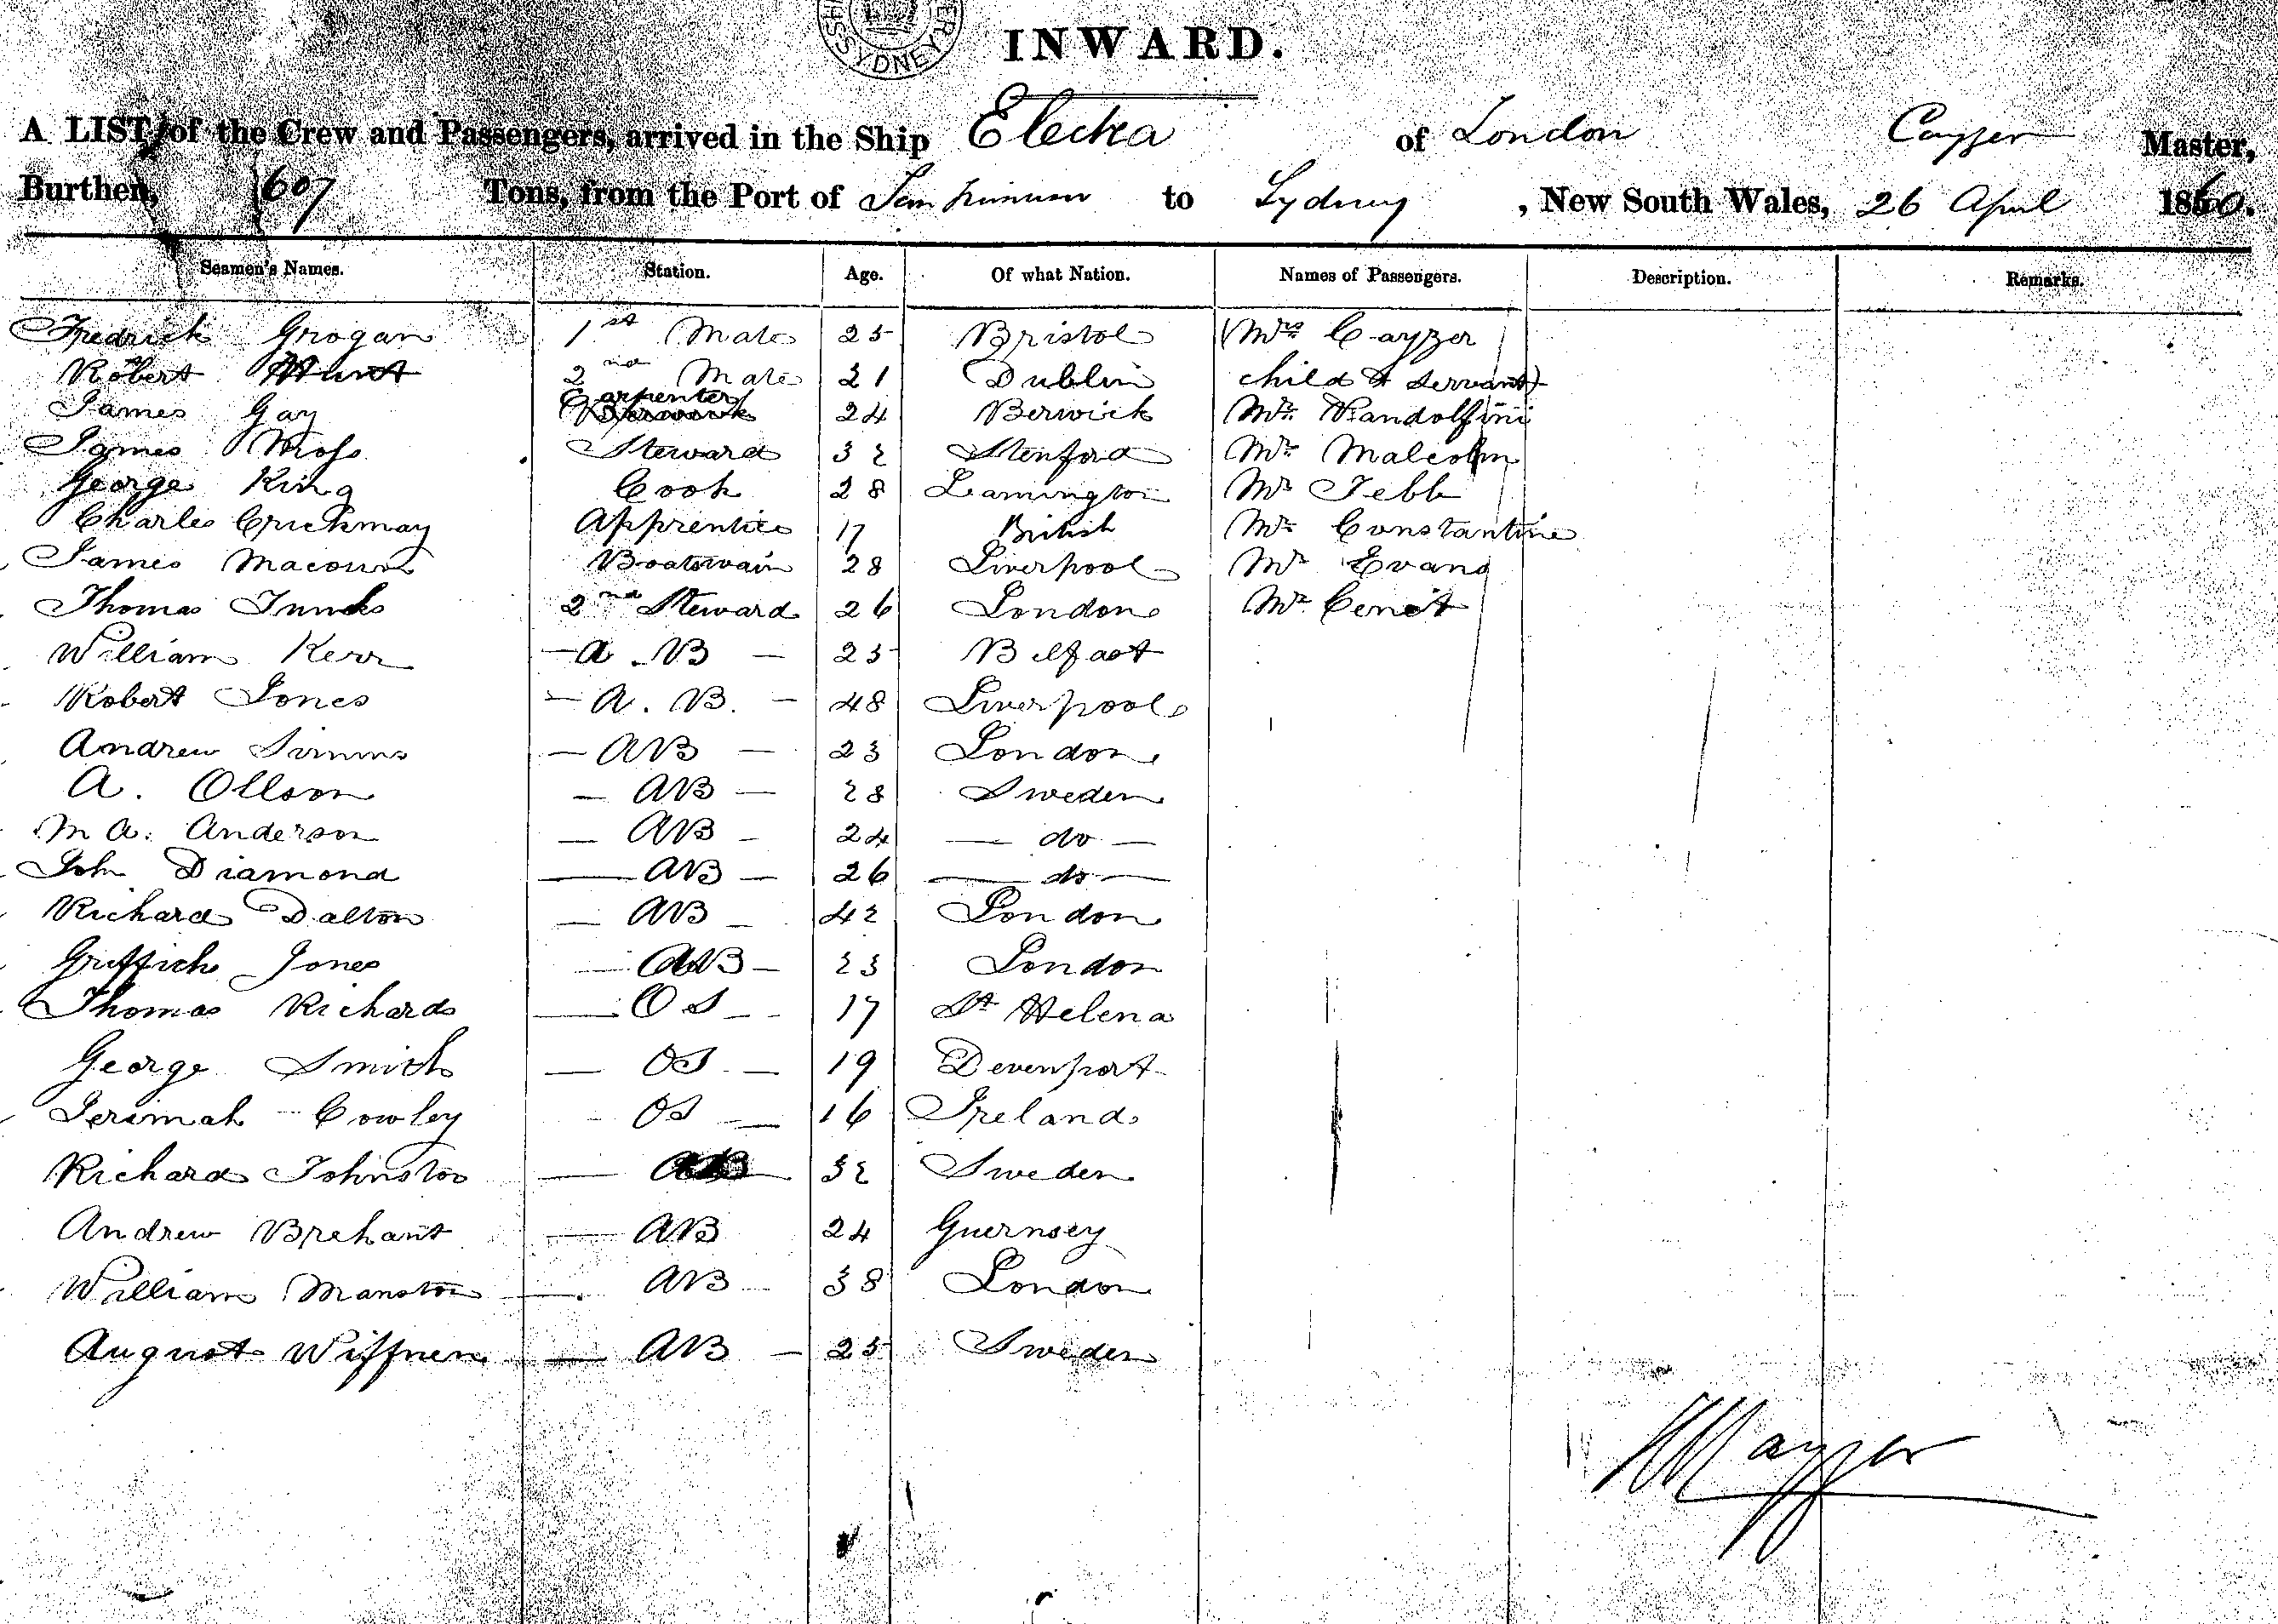 SYDNEY
INWARD.
A LIST of the Crew and Passengers, arrived in the Ship Electra of London Cayzer Master,
Burthen, 607 Tons, from the Port of San to Sydney, New South Wales, 26 April 1860.
Seamen's Names. Station. Age. Of what Nation. Names of Passengers. Description. Remarks.
Fredrick Grogan 1st Mate 25 Bristol Mrs Cayzer
Robert Hunt 2nd Mate 21 Dublin child & servant
James Gay Carpenter 24 Berwick Mr Randolfini
James Moss Steward 32 Stenford Mr Malcolm
George King Cook 28 Leamington Mr Jebb
Charles Crickmay Apprentice 17 British Mr Constantine
James Macown Boatswain 28 Liverpool Mr Evans
Thomas 2nd Steward 26 London Mr
William Kerr - A.B - 25 Belfast
Robert Jones - A.B. - 48 Liverpool
Andrew Simms - AB - 23 London
A. Ollson - AB - 28 Sweden
M A. Anderson - AB - 24 - do -
John Diamond - AB - 26 - do -
Richard Dalton - AB - 42 London
Griffith Jones - AB - 23 London
Thomas Richards - OS - 17 St Helena
George Smith - OS - 19 Devenport
Jerimah Cowley - OS - 16 Ireland
Richard Johnston - AB - 32 Sweden
Andrew Brehant - AB 24 Guernsey
William Manston - AB 38 London
August Wiffnen - AB - 25 Sweden
Cayzer